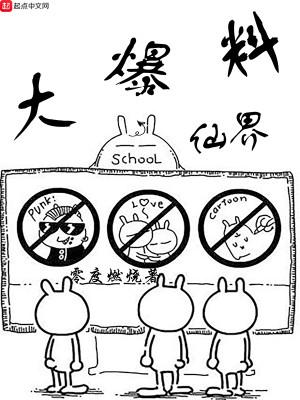 起点中文网
大爆料
仙界
SCHOOL
PUNK:
LOVE
cartoon
零度燃烧著